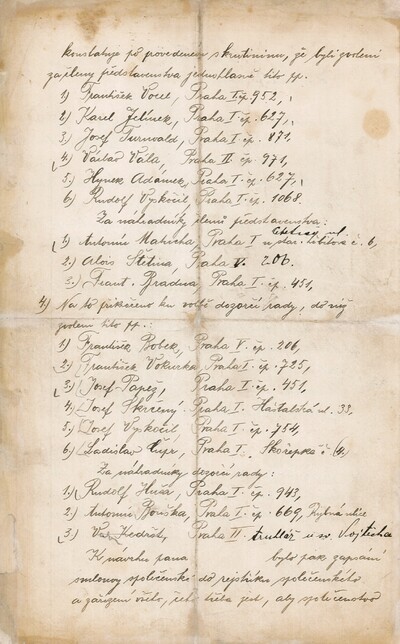 konstatuje po provedeném skrutiniu, že byli zvoleni
za členy představenstva jednohlasně tito pp.
1) František Vocel, Praha I čp. 952,
2) Karel Jelínek, Praha I. čp. 627,
3.) Josef Turnvald, Praha I. čp. 871,
4.) Václav Vála, Praha II. čp. 971,
5.) Hynek Adámek, Praha I. čp. 627,
6) Rudolf Vyskočil, Praha I. čp. 1068.
Za náhradníky členů představenstva:
1) Antonín Matucha, Praha I u star. č. 6,
2.) Alois Štětina, Praha V. 206.
3.) Frant. Bradna, Praha I. čp. 451,
4) Na to přikročeno ku volbě dozorčí rady, do níž
zvoleni tito pp.:
1) František Bobek, Praha V. čp. 206,
2.) František Vokurka, Praha I. čp. 725,
3.) Josef Papež, Praha I. čp. 451,
4.) Josef Praha I. Haštalská ul. 33,
5.) Josef Vyskočil Praha I. čp. 754,
6.) Ladislav Praha I. Skořepka č.
Za náhradníky dozorčí rady:
1.) Rudolf Praha I. čp. 943,
2.) Antonín Praha I. čp. 669, Rybná ulice
3.) Praha II. truhlář u sv. Vojtěcha
K návrhu pana bylo pak zapsání
smlouvy společenské do rejstříku společenského
a zařízení všeho, čeho třeba jest, aby společenstvo